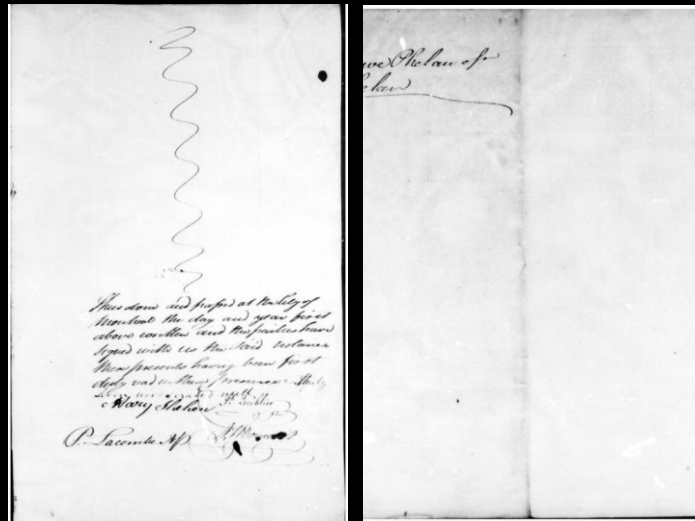 Thus done and passed at the City of
Montreal the day and year first
above written and the parties have
signed with us the said notaries
these presents having been first
duly read in their presence
Mary Phelan
P. Lacombe N.P.
Phelan of